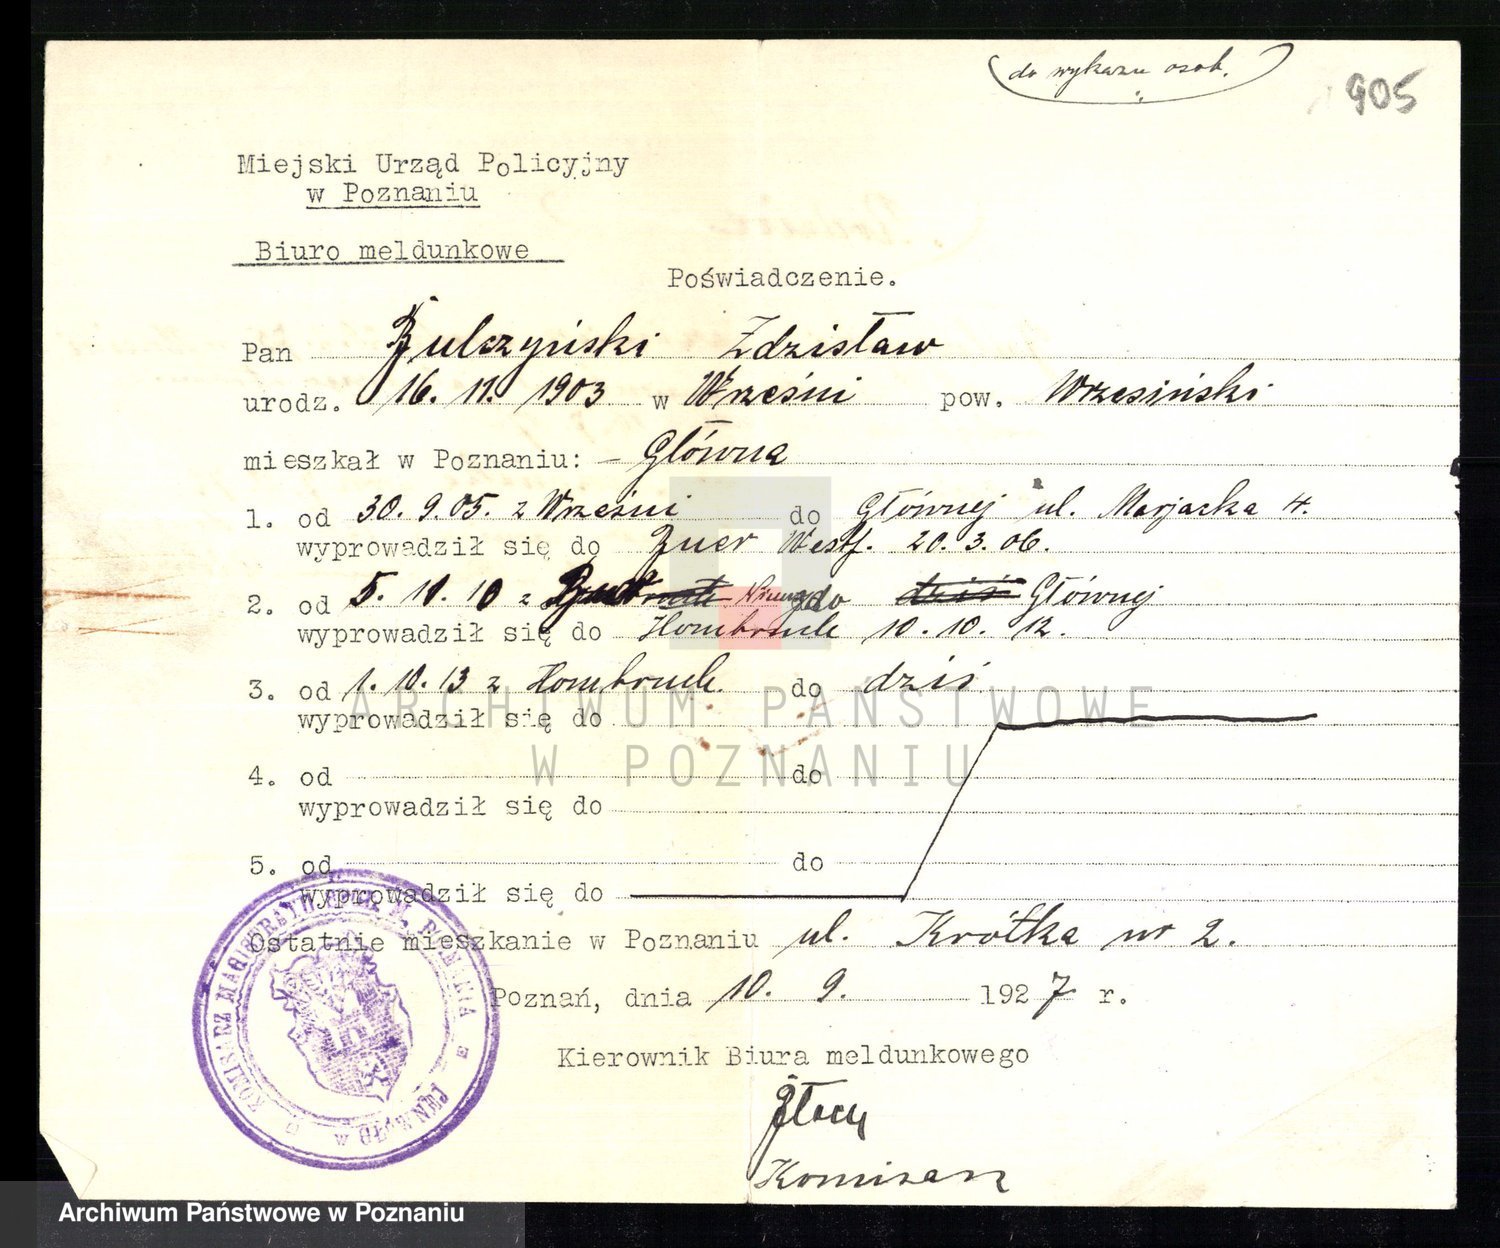 (do wykazu osob.)
905
Miejski Urząd Policyjny
w Poznaniu
Biuro meldunkowe
Poświadczenie.
Pan Żulczyński Zdzisław
urodz. 16. 11. 1903 w Wrześni pow. Wrzesiński
mieszkał w Poznaniu: – Główna
1. od 30. 9. 05. z Wrześni do Głównej ul. Marjacka 4.
wyprowadził się do Buer Westf. 20. 3. 06.
2. od 5. 11. 10 z do Głównej
wyprowadził się do Hombruch 10. 10. 12.
3. od 1. 10. 13 z Hombruch do dziś
wyprowadził się do
4. od do
wyprowadził się do
5. od do
wyprowadził się do
Ostatnie mieszkanie w Poznaniu ul. Krótka nr 2.
Poznań, dnia 10. 9. 1927 r.
Kierownik Biura meldunkowego
Komisarz
ARCHIWUM PAŃSTWOWE
W POZNANIU
Archiwum Państwowe w Poznaniu